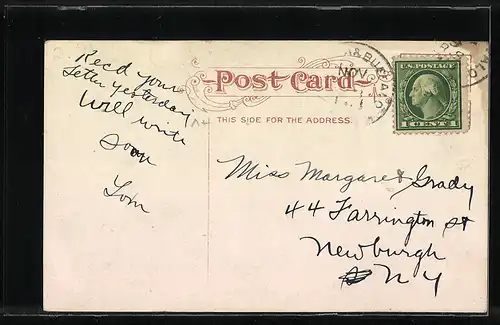 Rec'd your
letter yesterday
Will write
soon
Tom
Post Card
THIS SIDE FOR THE ADDRESS.
& BUFFALO
NOV
U.S. POSTAGE
1 CENT 1
Miss Margaret Grady
44 Farrington St
Newburgh
N Y